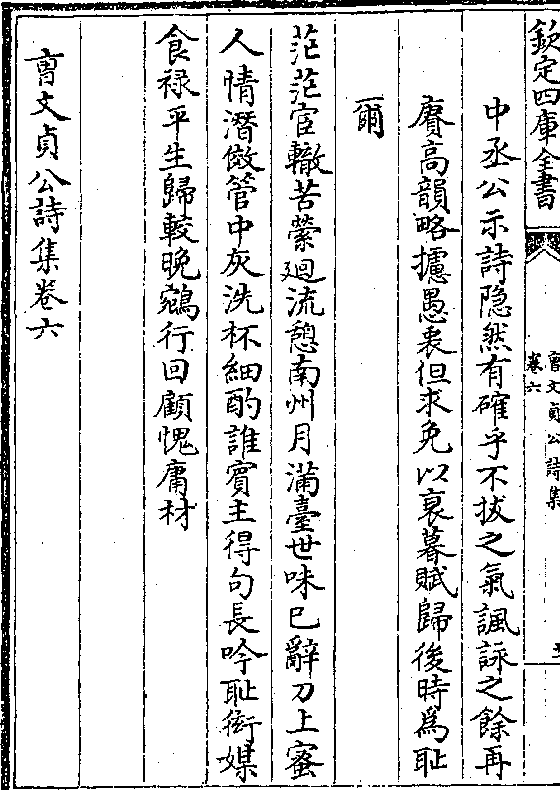 欽定四庫全書
曹文貞公詩集
卷六
中丞公示詩隠然有確乎不拔之氣諷詠之餘再
賡高韻略攄愚衷但求免以衰暮賦歸後時為耻
爾
茫茫宦轍苦縈廻流憩南州月滿臺世味已辭刀上蜜
人情潛倣管中灰洗杯細酌誰賓主得句長吟耻衒媒
食禄平生歸較晚鵷行回顧愧庸材
曹文貞公詩集卷六